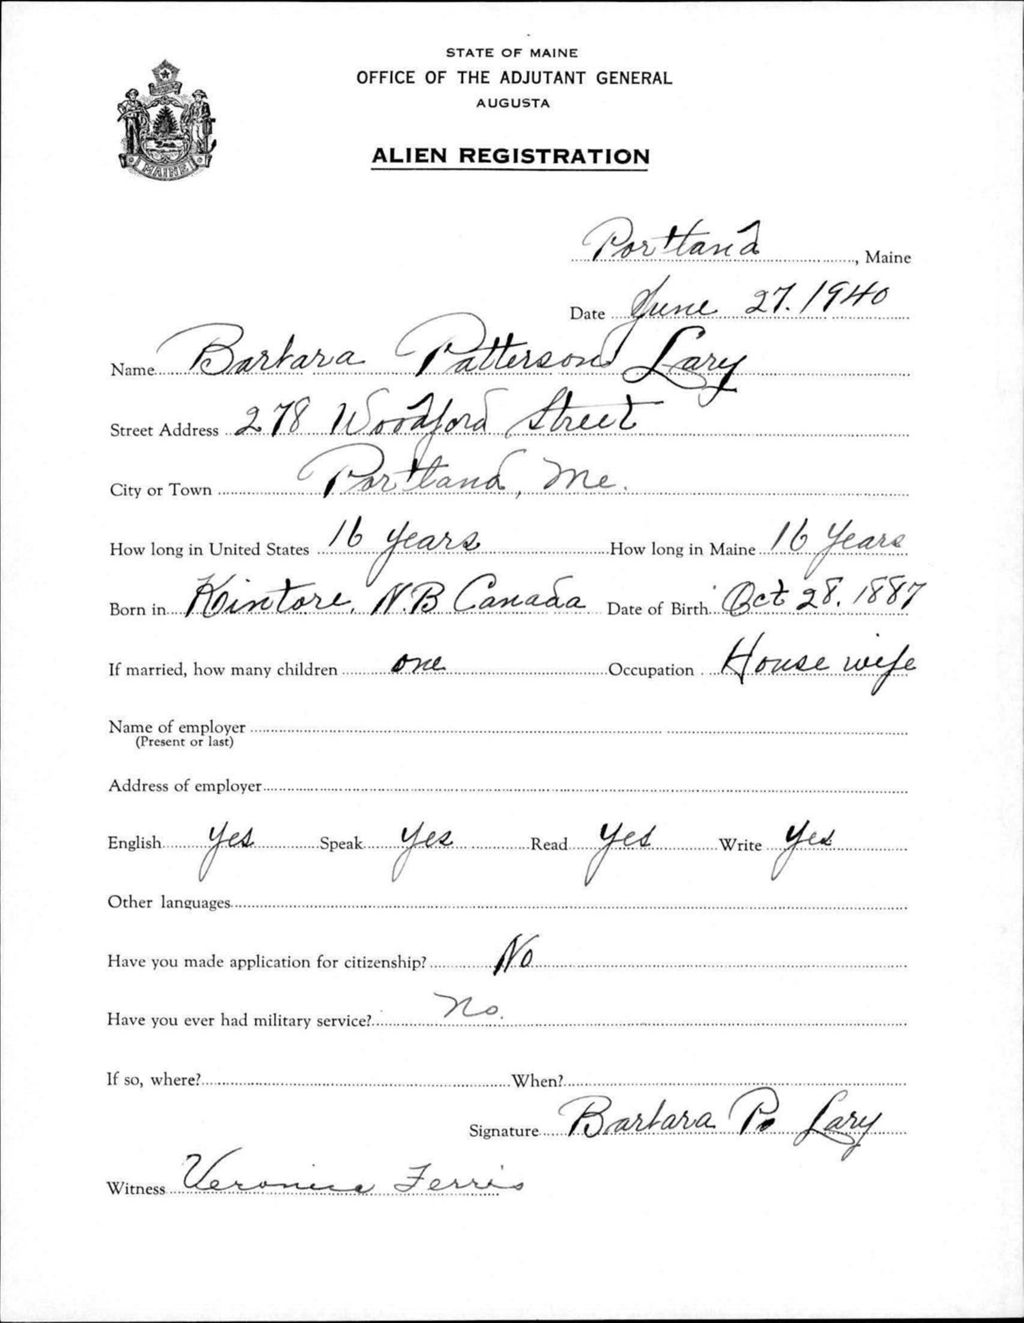 STATE OF MAINE
OFFICE OF THE ADJUTANT GENERAL
AUGUSTA
ALIEN REGISTRATION
MAINE
Portland, Maine
Date June 27. 1940
Name Barbara Patterson Lary
Street Address 278 Woodford Street
City or Town Portland, Me.
How long in United States 16 years How long in Maine 16 Years
Born in Kintore, N.B Canada Date of Birth Oct 28. 1887
If married, how many children one Occupation House wife
Name of employer
(Present or last)
Address of employer
English Yes Speak Yes Read Yes Write Yes
Other languages
Have you made application for citizenship? No
Have you ever had military service? No.
If so, where? When?
Signature Barbara P. Lary
Witness Veronica Ferris